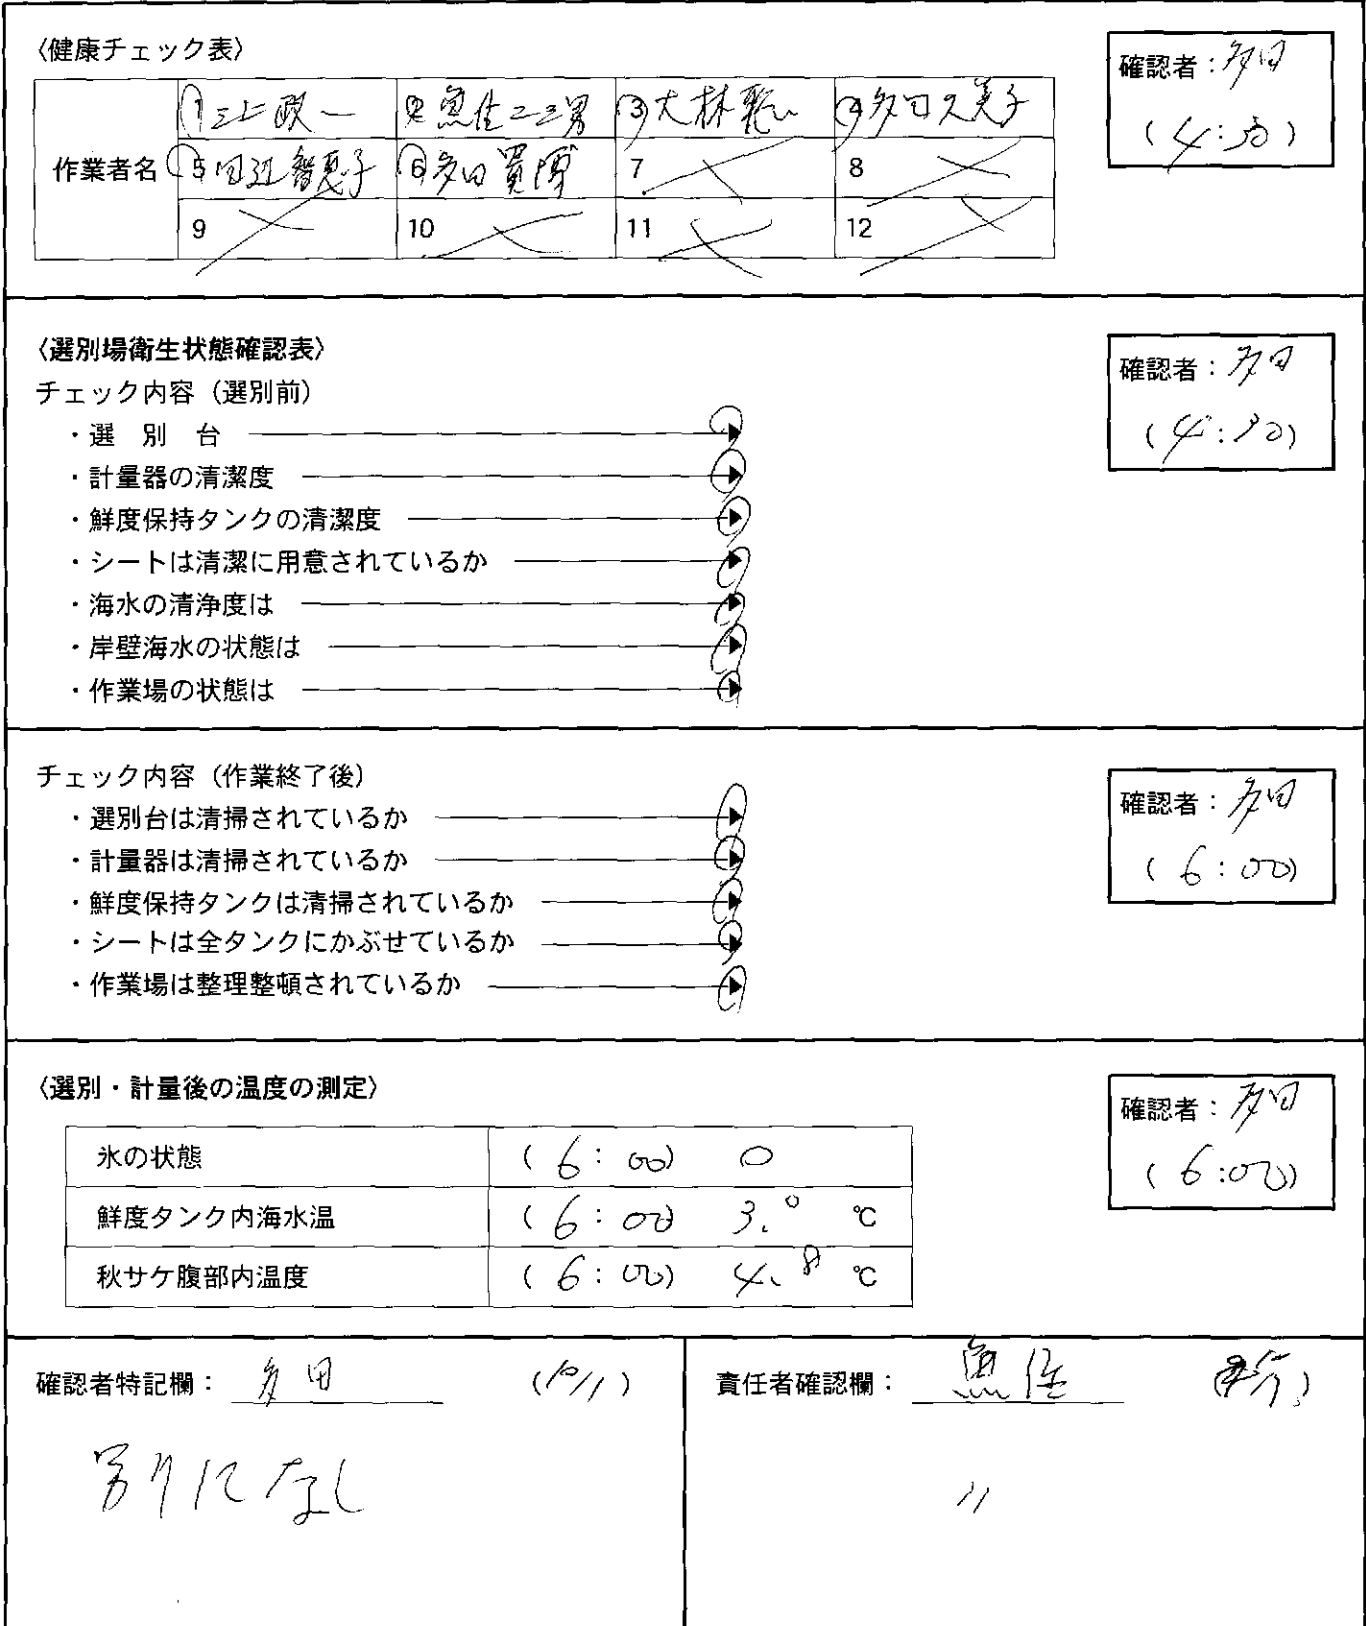 〈健康チェック表〉
確認者：多田
(4:30)
作業者名
1 三上政一 2 魚住二三男 3 大林 4 多田久美子
5 田辺智恵子 6 多田 7 8
9 10 11 12
〈選別場衛生状態確認表〉
確認者：多田
(4:30)
チェック内容（選別前）
・選別台
・計量器の清潔度
・鮮度保持タンクの清潔度
・シートは清潔に用意されているか
・海水の清浄度は
・岸壁海水の状態は
・作業場の状態は
チェック内容（作業終了後）
確認者：多田
(6:00)
・選別台は清掃されているか
・計量器は清掃されているか
・鮮度保持タンクは清掃されているか
・シートは全タンクにかぶせているか
・作業場は整理整頓されているか
〈選別・計量後の温度の測定〉
確認者：多田
(6:00)
氷の状態 (6:00) ○
鮮度タンク内海水温 (6:00) 3.0 ℃
秋サケ腹部内温度 (6:00) 4.8 ℃
確認者特記欄：多田 (10/1)
別になし
責任者確認欄：魚住
〃